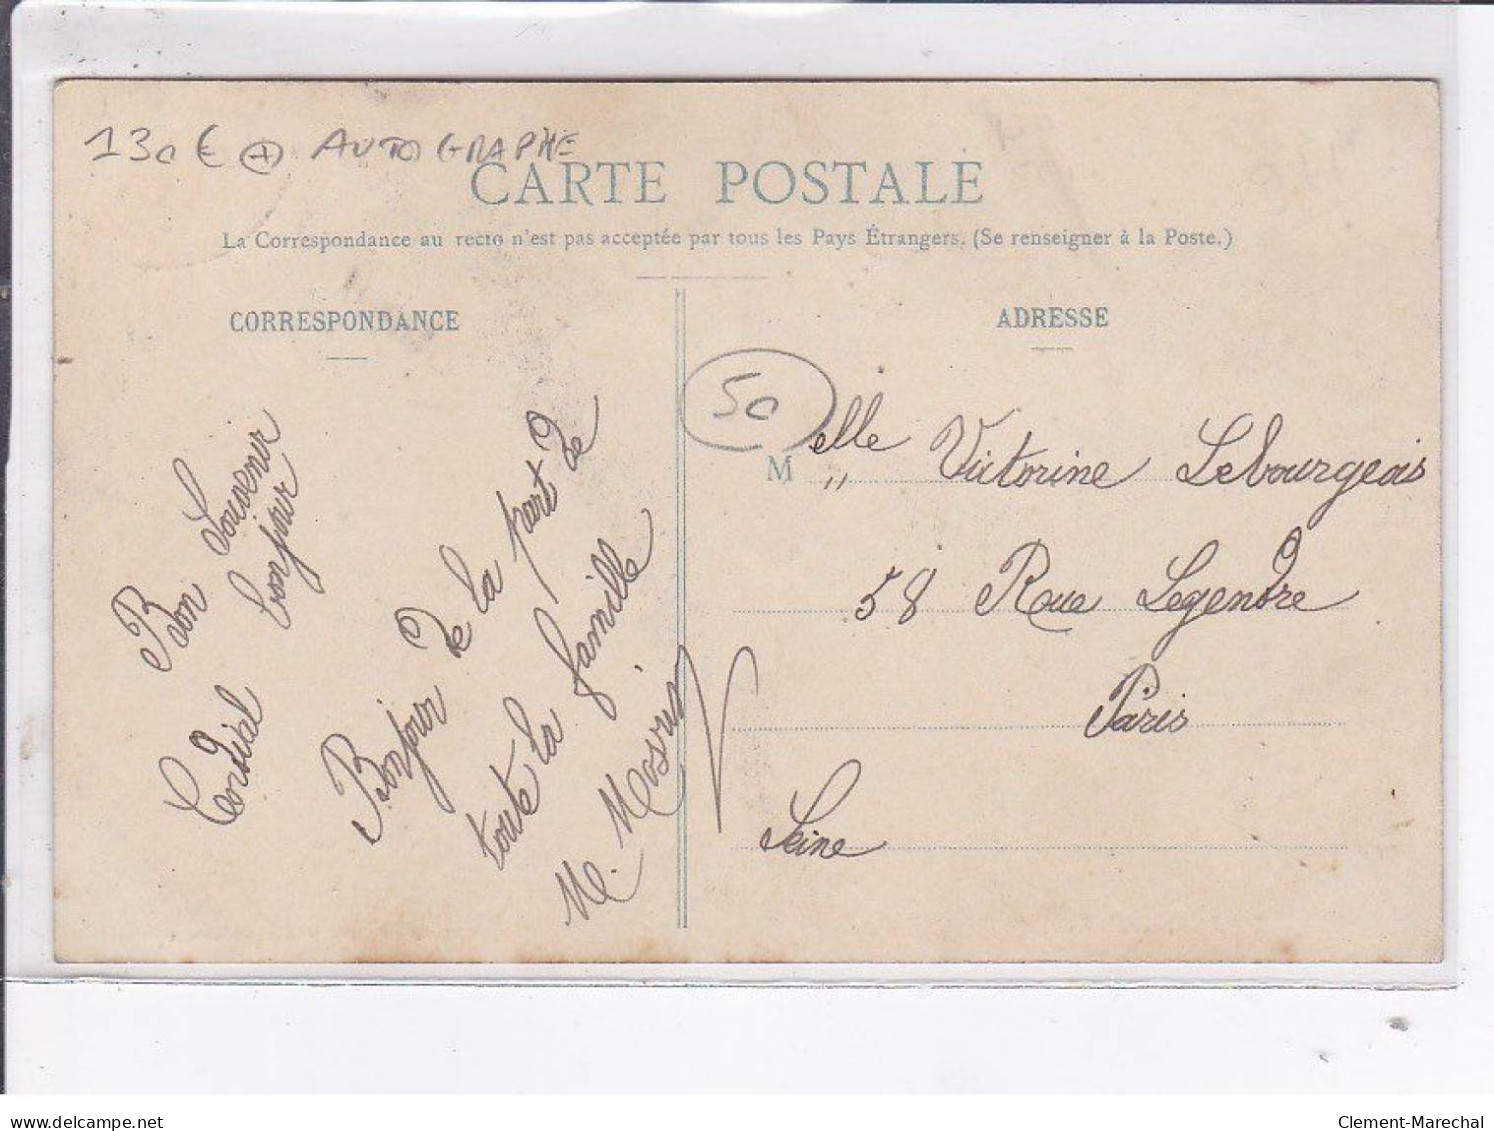 130 € + AUTOGRAPHE
CARTE POSTALE
La Correspondance au recto n'est pas acceptée par tous les Pays Étrangers. (Se renseigner à la Poste.)
CORRESPONDANCE
Bon Souvenir
Cordial bonjour
Bonjour de la part de
toute la famille
ADRESSE
50
M elle Victorine Lebourgeois
58 Rue Legendre
Paris
Seine
www.delcampe.net
Clement-Marechal